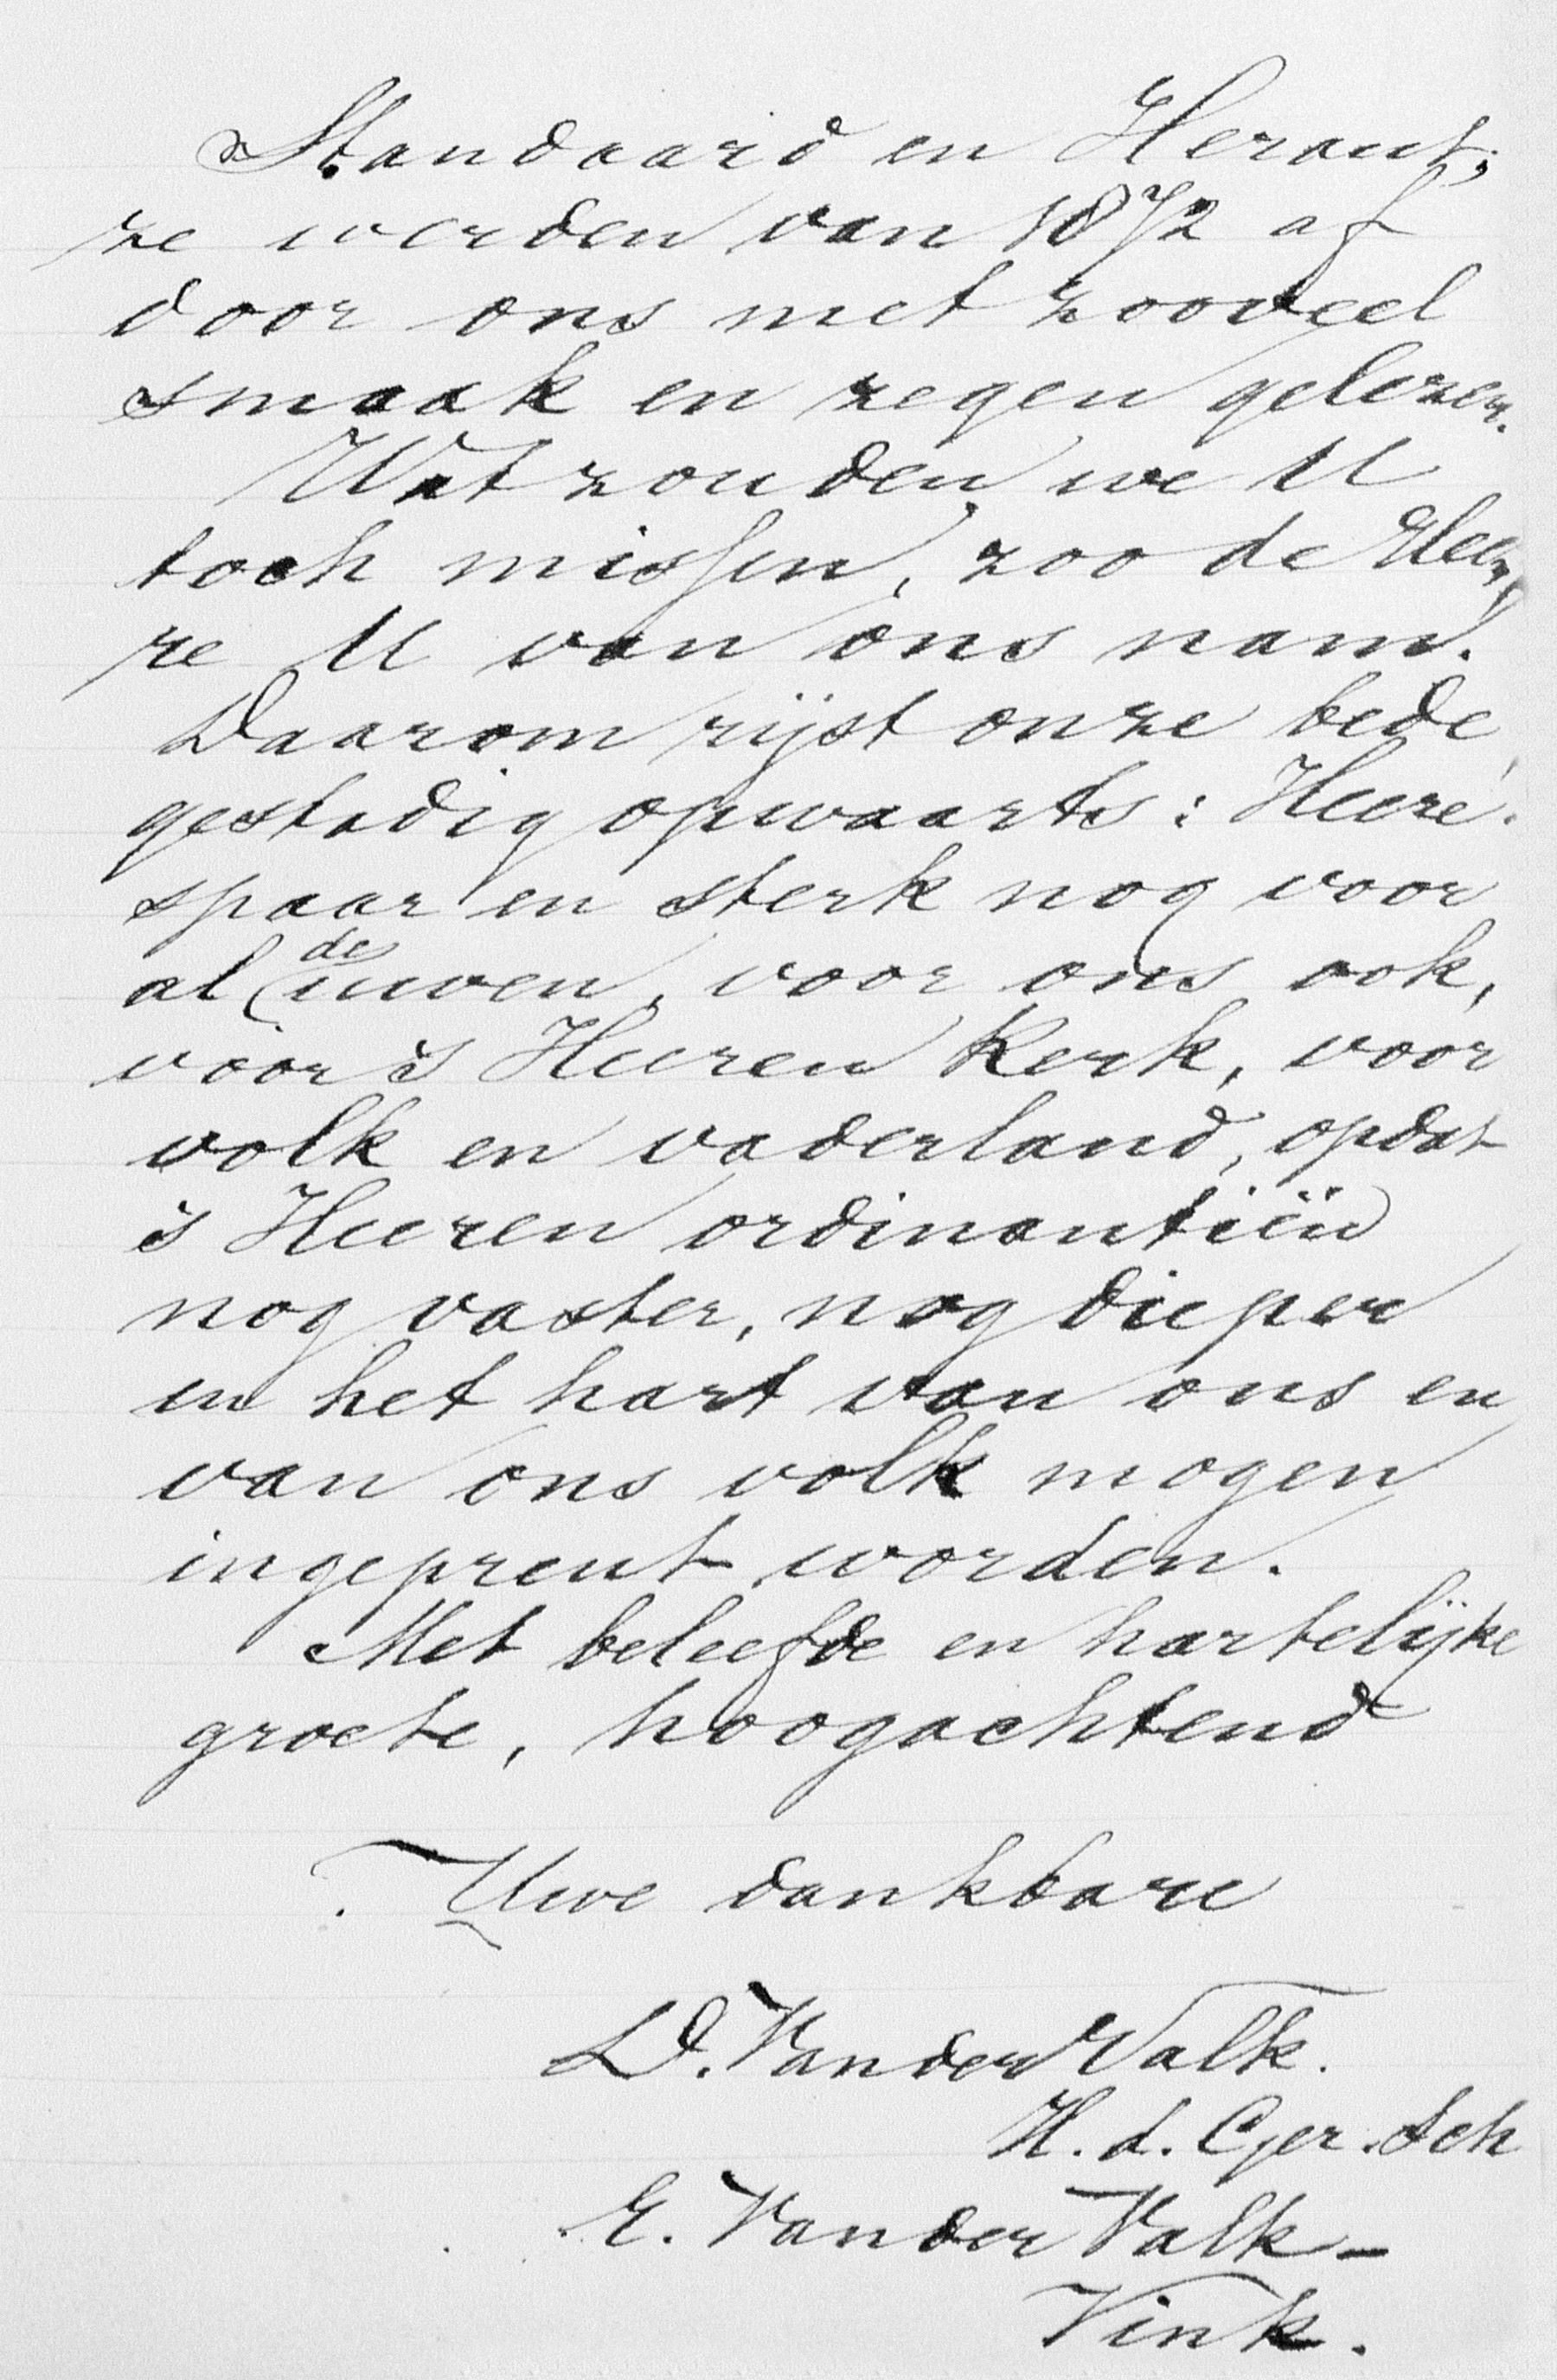 Standaard en Heraut;
ze werden van 1872 af
door ons met zooveel
smaak en zegen gelezen.
Wat zouden we U
toch missen, zoo de Hee,,
re U van ons nam.
Daarom rijst onze bede
gestadig opwaarts: Heere!
spaar en sterk nog voor
al de uwen, voor ons ook,
voor 's Heeren Kerk, voor
volk en vaderland, opdat
's Heeren ordinantiën
nog vaster, nog dieper
in het hart van ons en
van ons volk mogen
ingeprent worden.
Met beleefde en hartelijke
groete, hoogachtend
Uwe dankbare
D. Van der Valk.
H. d. Ger. Sch
E. Van der Valk-
Vink.